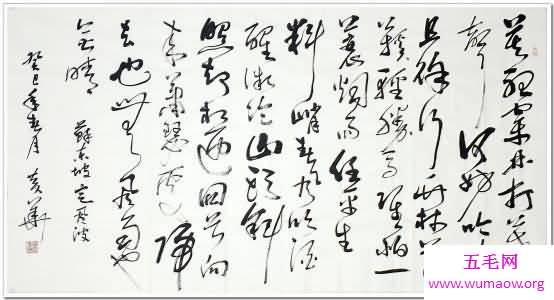 莫听穿林打叶
声何妨吟啸
且徐行竹杖芒
鞋轻胜马谁怕一
蓑烟雨任平生
料峭春风吹酒
醒微冷山头斜
照却相迎回首向
来萧瑟处归
去也无风雨也
无晴 苏东坡定风波
癸巳年春月
五毛网
www.wumaow.org